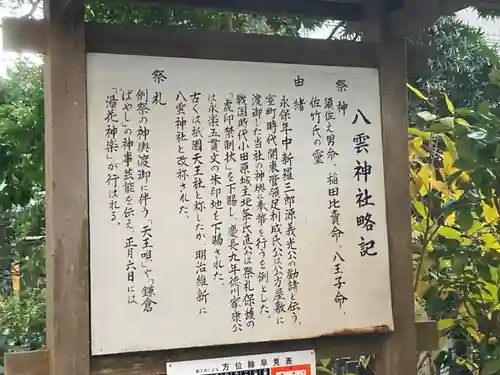 八雲神社略記
祭神
須佐之男命、稲田比売命、八王子命、
佐竹氏の霊
由緒
永保年中新羅三郎源義光公の勧請と伝う。
室町時代関東管領足利成氏公は公方屋敷に
渡御した当社の神輿に奉幣を行うを例とした。
戦国時代小田原城主北条氏直公は祭礼保護の
「虎印禁制状」を下賜し、慶長九年徳川家康公
は永楽五貫文の朱印地を下された。
古くは祇園天王社と称したが、明治維新に
八雲神社と改称された。
祭礼
例祭の神輿渡御に伴う「天王唄」や「鎌倉
ばやし」の神事芸能を伝え、正月六日には
「湯花神楽」が行はれる。
方位除早見表